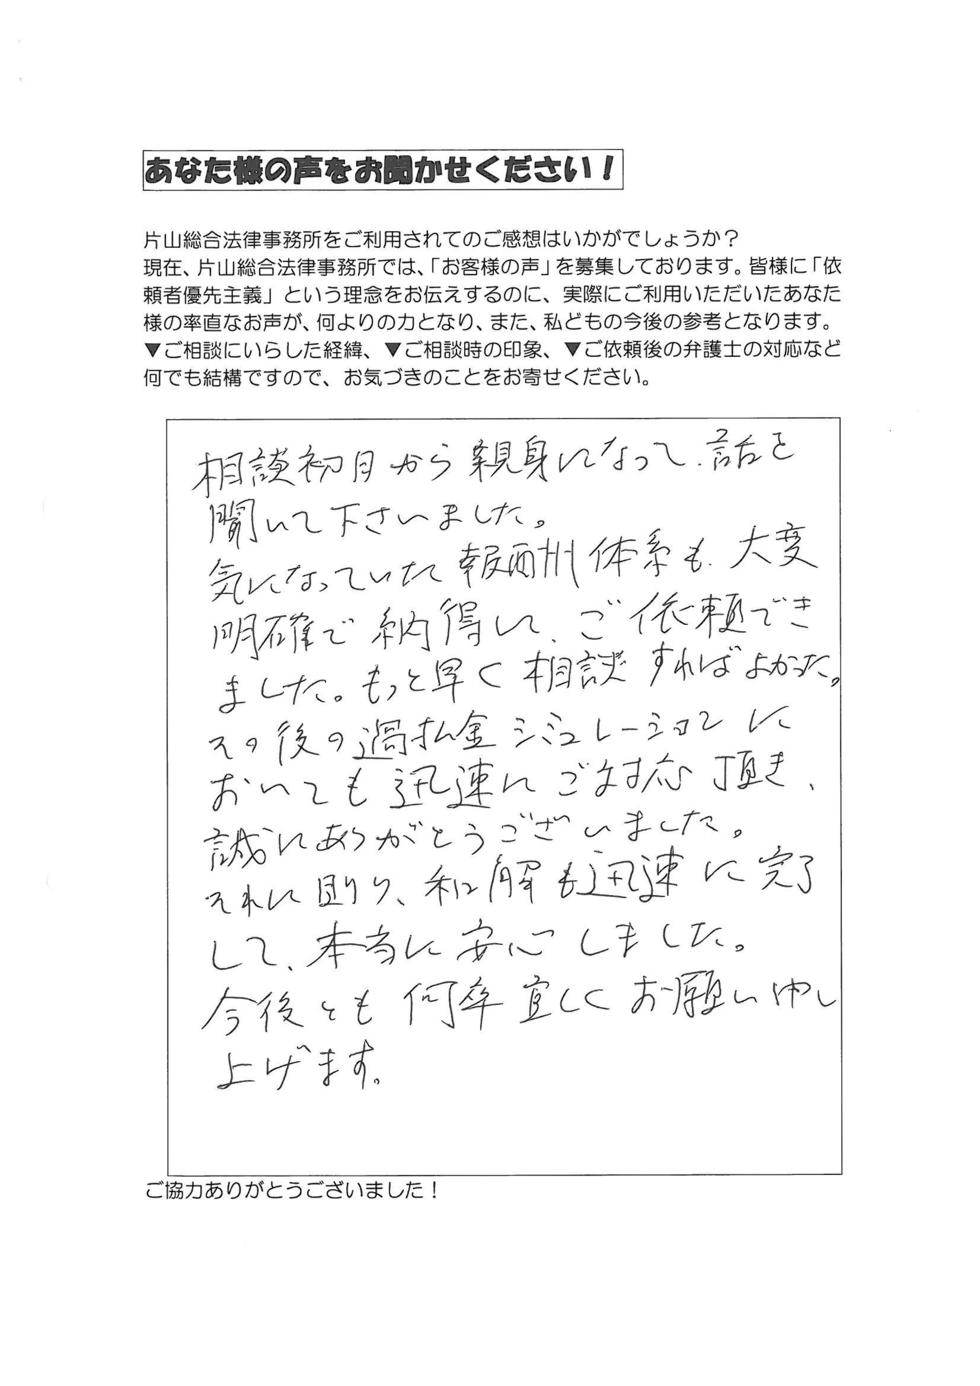 あなた様の声をお聞かせください！
片山総合法律事務所をご利用されてのご感想はいかがでしょうか？
現在、片山総合法律事務所では、「お客様の声」を募集しております。皆様に「依
頼者優先主義」という理念をお伝えするのに、実際にご利用いただいたあなた
様の率直なお声が、何よりの力となり、また、私どもの今後の参考となります。
▼ご相談にいらした経緯、▼ご相談時の印象、▼ご依頼後の弁護士の対応など
何でも結構ですので、お気づきのことをお寄せください。
相談初日から親身になって、話を
聞いて下さいました。
気になっていた報酬体系も、大変
明確で納得して、ご依頼でき
ました。もっと早く相談すればよかった。
その後の過払金シミュレーションに
おいても迅速にご対応頂き、
誠にありがとうございました。
それに則り、和解も迅速に完了
して、本当に安心しました。
今後とも何卒宜しくお願い申し
上げます。
ご協力ありがとうございました！